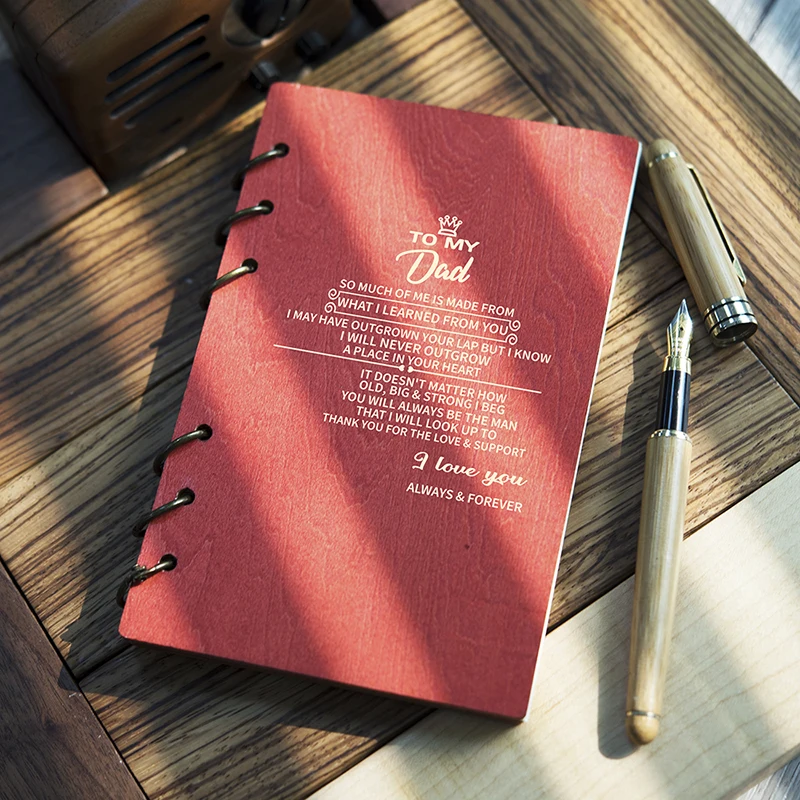 TO MY
Dad
SO MUCH OF ME IS MADE FROM
WHAT I LEARNED FROM YOU
I MAY HAVE OUTGROWN YOUR LAP BUT I KNOW
I WILL NEVER OUTGROW
A PLACE IN YOUR HEART
IT DOESN'T MATTER HOW
OLD, BIG & STRONG I BEG
YOU WILL ALWAYS BE THE MAN
THAT I WILL LOOK UP TO
THANK YOU FOR THE LOVE & SUPPORT
I love you
ALWAYS & FOREVER